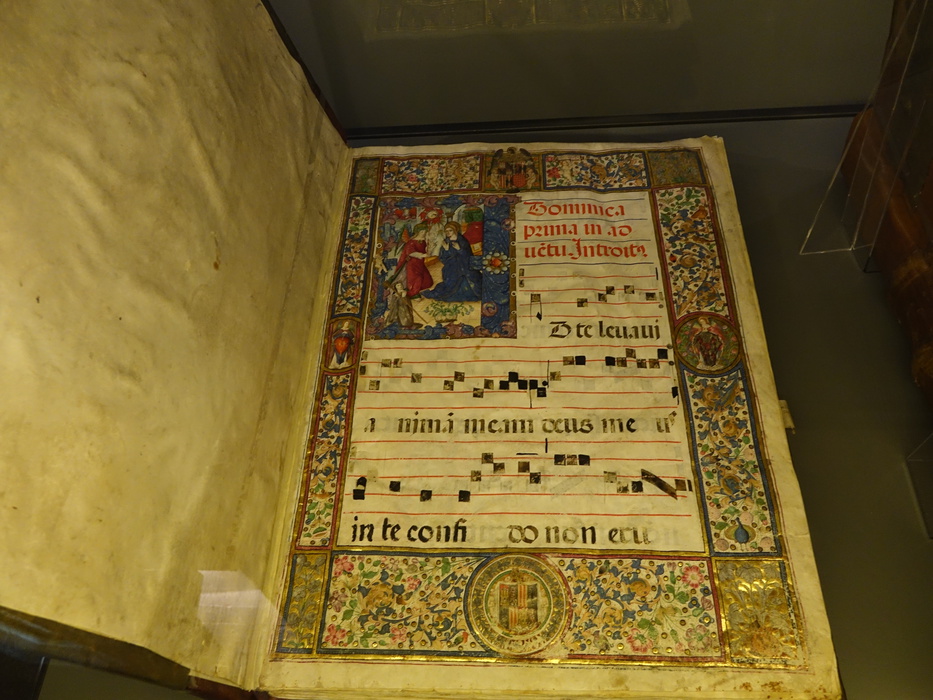 Dominica
prima in ad
uētu. Introitꝰ
D te leuaui
a nimā meam deus me uˢ
in te confi do non eru